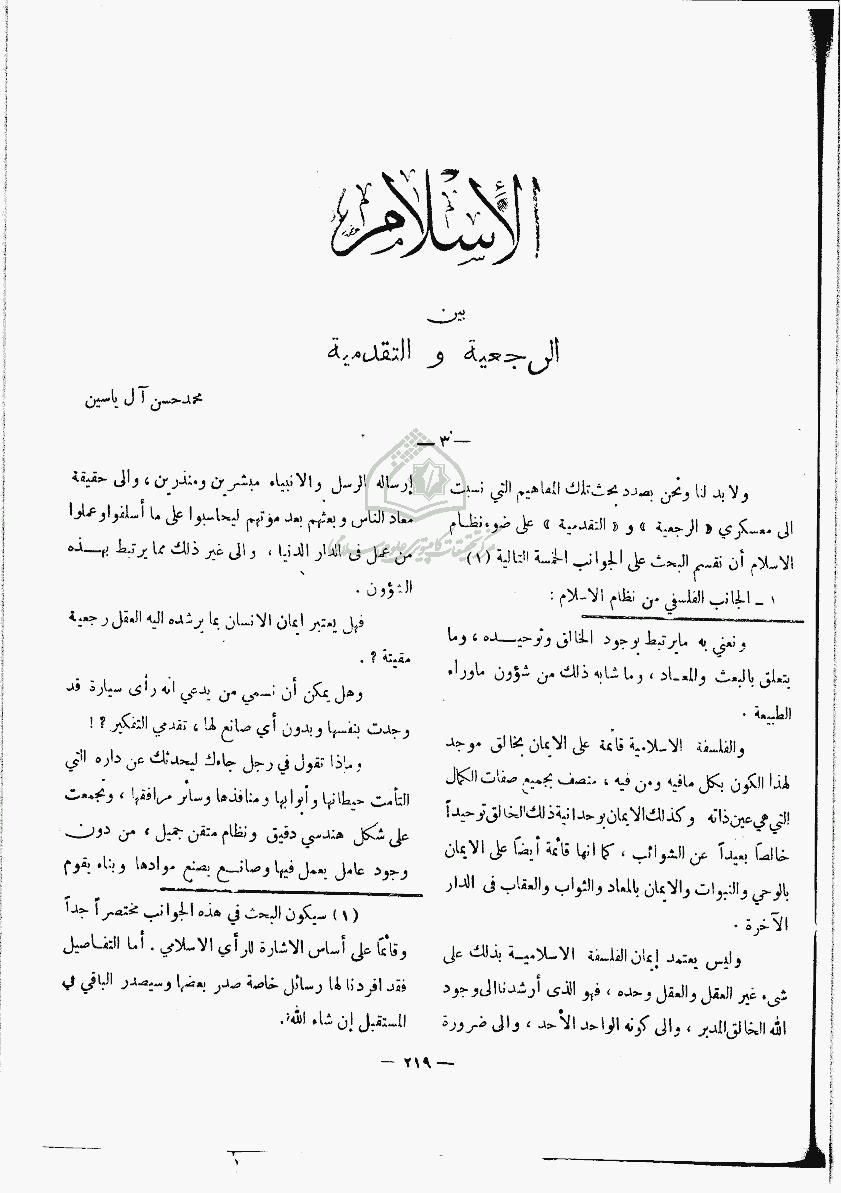 الإسلام
بين
الرجعية و التقدمية
محمد حسن آل ياسين
— ٣ —
ولابد لنا ونحن بصدد بحث تلك المفاهيم التي نسبت
الى معسكري « الرجعية » و « التقدمية » على ضوء نظام
الاسلام أن نقسم البحث على الجوانب الخمسة التالية (١)
١ ـ الجانب الفلسفي من نظام الاسلام :
ونعني به مايرتبط بوجود الخالق وتوحيده ، وما
يتعلق بالبعث والمعاد ، وما شابه ذلك من شؤون ماوراء
الطبيعة .
والفلسفة الاسلامية قائمة على الايمان بخالق موجد
لهذا الكون بكل مافيه ومن فيه ، متصف بجميع صفات الكمال
التي هي عين ذاته وكذلك الايمان بوحدانية ذلك الخالق توحيداً
خالصاً بعيداً عن الشوائب ، كما انها قائمة أيضاً على الايمان
بالوحي والنبوات والايمان بالمعاد والثواب والعقاب فى الدار
الآخرة .
وليس يعتمد إيمان الفلسفة الاسلامية بذلك على
شيء غير العقل والعقل وحده ، فهو الذى أرشدنا الى وجود
الله الخالق المدبر ، والى كونه الواحد الأحد ، والى ضرورة
إرساله الرسل والانبياء مبشرين ومنذرين ، والى حقيقة
معاد الناس وبعثهم بعد موتهم ليحاسبوا على ما أسلفوا وعملوا
من عمل فى الدار الدنيا ، والى غير ذلك مما يرتبط بهذه
الشؤون .
فهل يعتبر ايمان الانسان بما يرشده اليه العقل رجعية
مقيتة ؟ .
وهل يمكن أن نسمي من يدعي انه رأى سيارة قد
وجدت بنفسها وبدون أي صانع لها ، تقدمي التفكير ؟ !
وماذا تقول في رجل جاءك ليحدثك عن داره التي
التأمت حيطانها وأبوابها ومنافذها وسائر مرافقها ، وتجمعت
على شكل هندسي دقيق ونظام متقن جميل ، من دون
وجود عامل يعمل فيها وصانع يصنع موادها وبناء يقوم
(١) سيكون البحث في هذه الجوانب مختصراً جداً
وقائماً على أساس الاشارة للرأي الاسلامي . أما التفاصيل
فقد افردنا لها رسائل خاصة صدر بعضها وسيصدر الباقي في
المستقبل إن شاء الله .
— ٢١٩ —